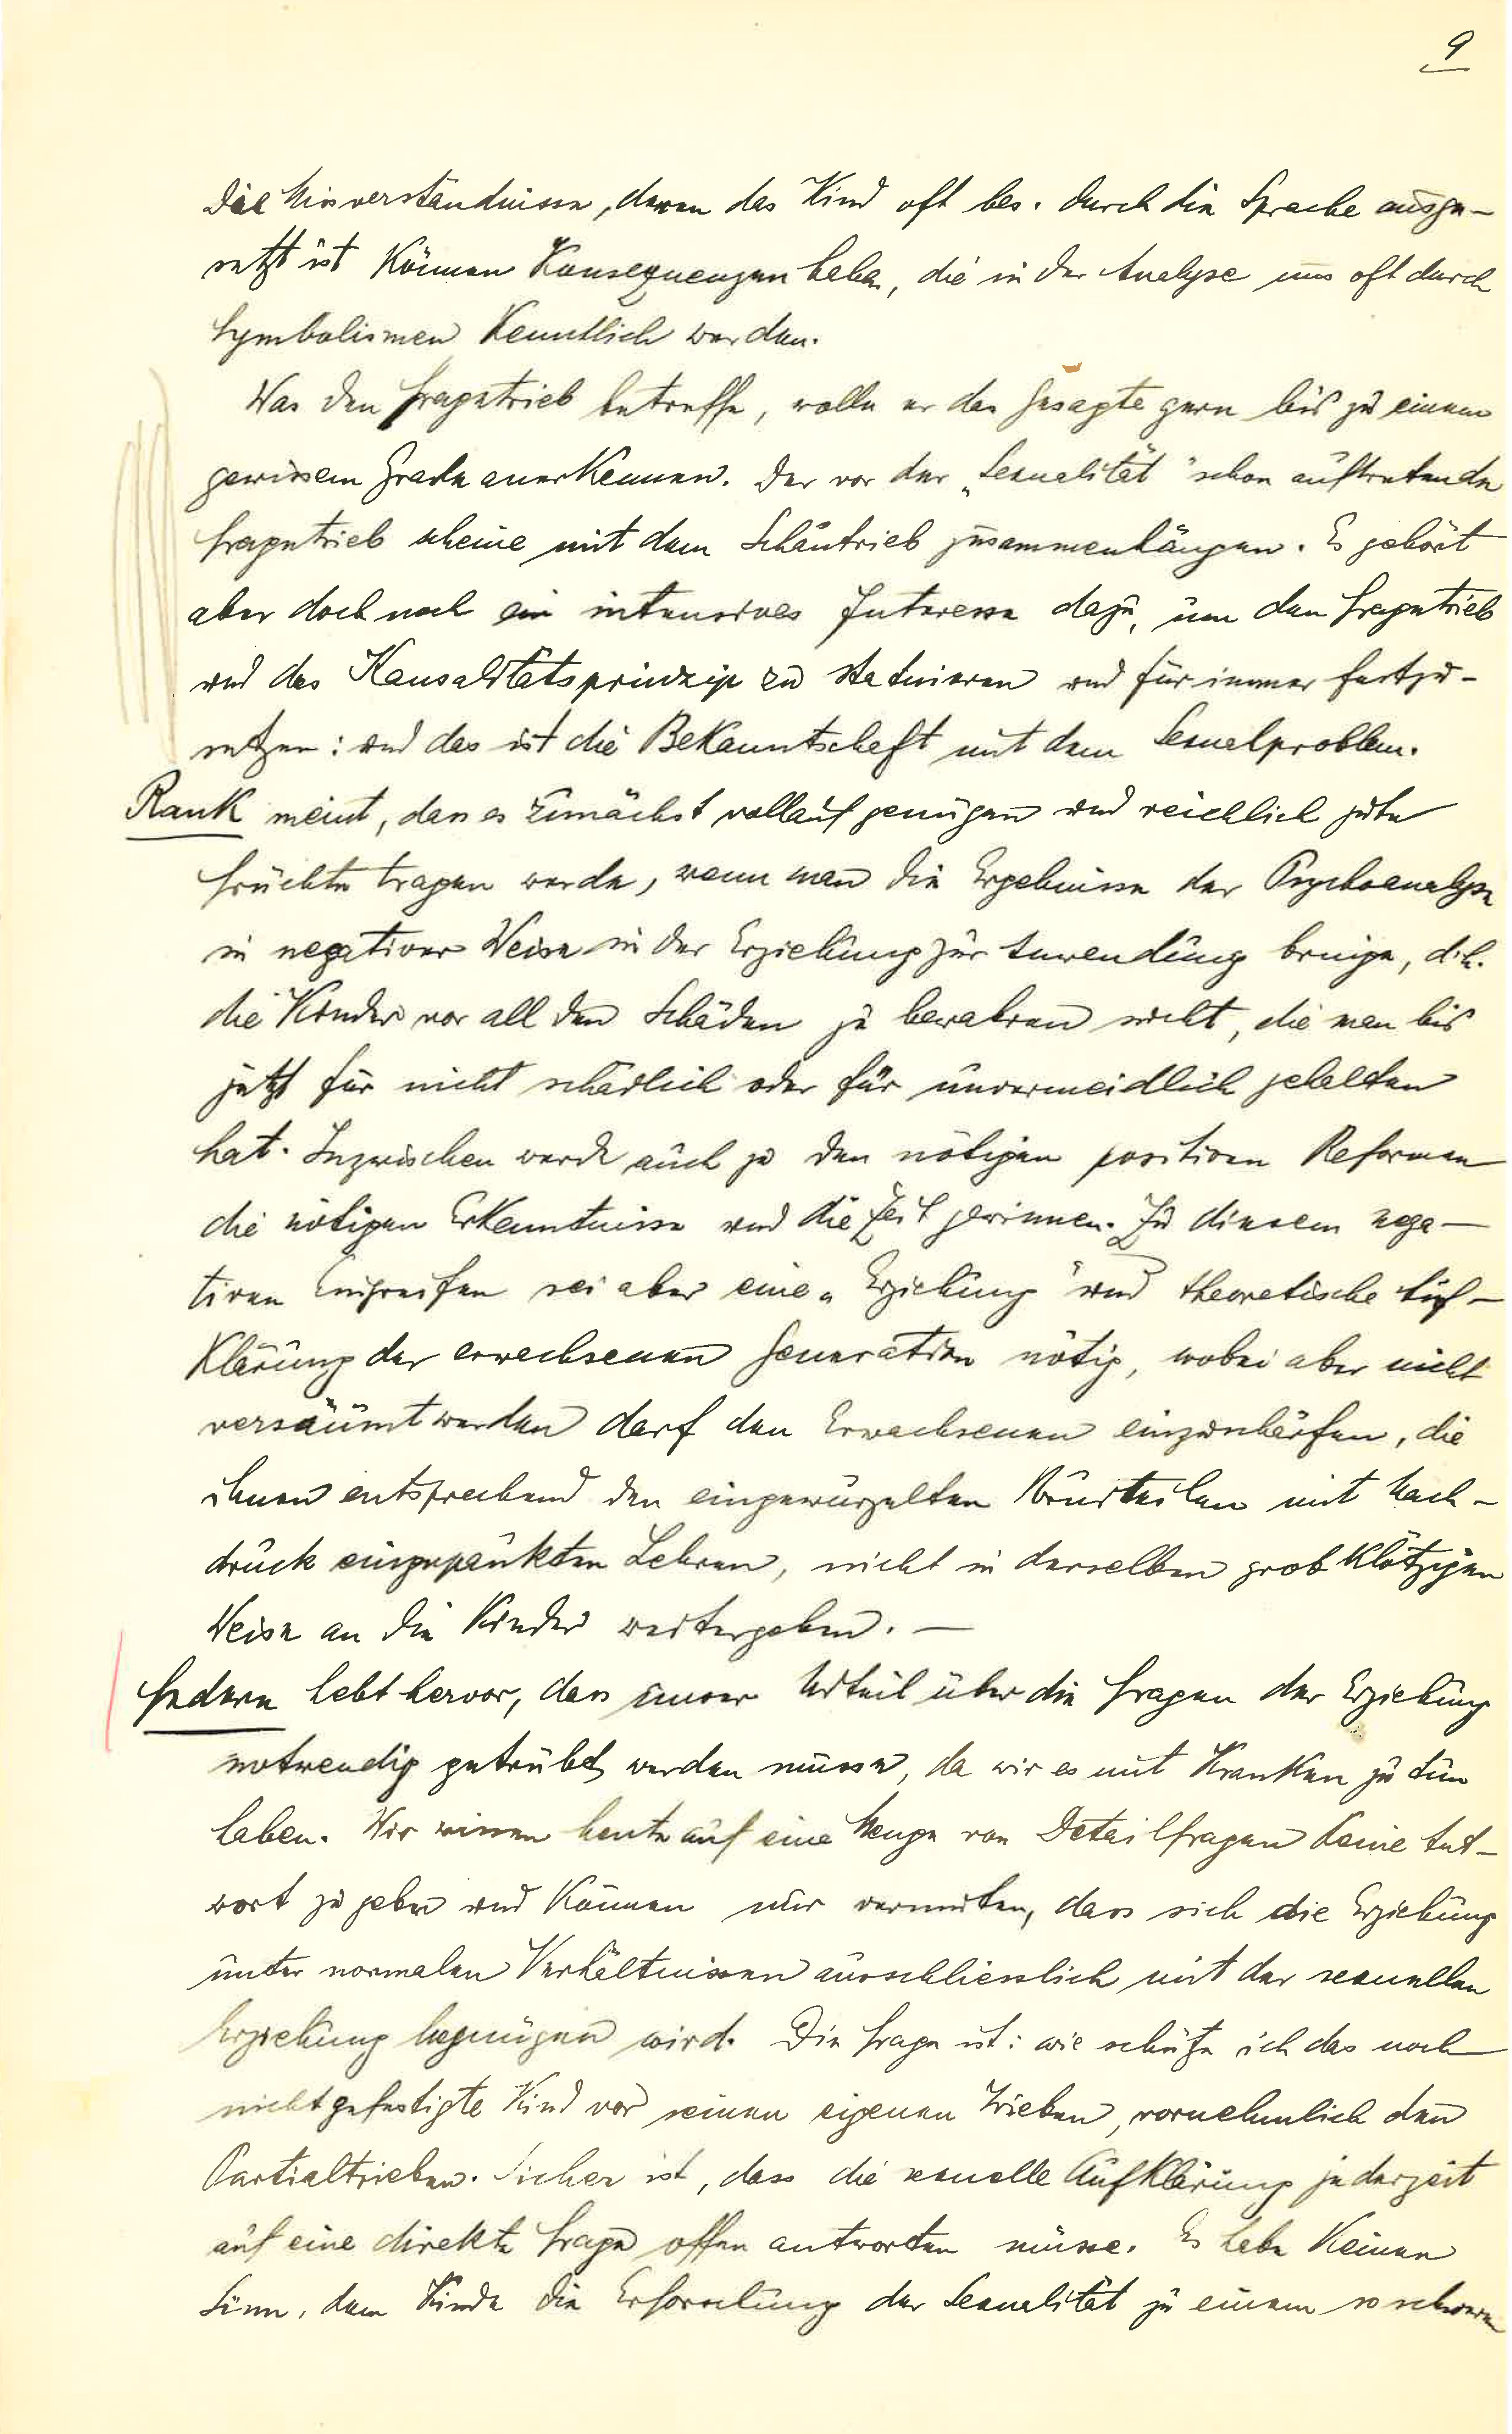 9
Die Misverständnisse, denen das Kind oft bes. durch die Sprache ausge-
setzt ist können Konsequenzen haben, die in der Analyse uns oft durch
Symbolismen kenntlich werden.
Was den Fragetrieb betreffe, wolle er das Gesagte gern bis zu einem
gewissem Grade anerkennen. Der vor der „Sexualität" schon auftretende
Fragetrieb scheine mit dem Schautrieb zusammenhängen. Es gehört
aber doch noch ein intensives Interesse dazu, um den Fragetrieb
und das Kausalitätsprinzip zu statuieren und für immer fortzu-
setzen: und das ist die Bekanntschaft mit dem Sexualproblem.
Rank meint, dass es zunächst vollauf genügen und reichlich gute
Früchte tragen werde, wenn man die Ergebnisse der Psychoanalyse
in negativer Weise in der Erziehung zur Anwendung bringe, d.h.
die Kinder vor all den Schäden zu bewahren sucht, die man bis
jetzt für nicht schädlich oder für unvermeidlich gehalten
hat. Inzwischen werde auch zu den nötigen positiven Reformen
die nötigen Erkenntnisse und die Zeit gewinnen. Zu diesem nega-
tiven Eingreifen sei aber eine „Erziehung" und theoretische Auf-
klärung der erwachsenen Generation nötig, wobei aber nicht
versäumt werden darf den Erwachsenen einzuschärfen, die
ihnen entsprechend den eingewurzelten Vorurteilen mit Nach-
druck eingepaukten Lehren, nicht in derselben grob klotzigen
Weise an die Kinder weitergeben. —
Federn hebt hervor, dass unser Urteil über die Fragen der Erziehung
notwendig getrübt werden müsse, da wir es mit Kranken zu tun
haben. Wir wissen heute auf eine Menge von Detailfragen keine Ant-
wort zu geben und können nur vermuten, dass sich die Erziehung
unter normalen Verhältnissen ausschliesslich mit der sexuellen
Erziehung begnügen wird. Die Frage ist: wie schütze ich das noch
nicht gefestigte Kind vor seinen eigenen Trieben, vornehmlich den
Partialtrieben. Sicher ist, dass die sexuelle Aufklärung jederzeit
auf eine direkte Frage offen antworten müsse. Es habe keinen
Sinn, dem Kinde die Erforschung der Sexualität zu einem so schweren